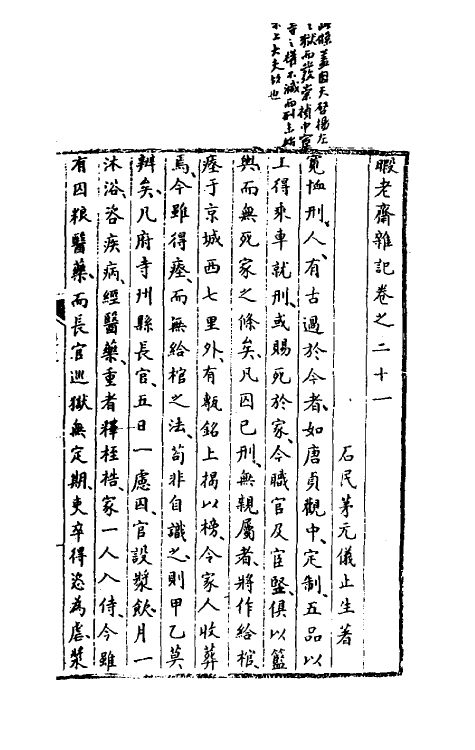 此條蓋因天啓楊左
之獄而發崇禎中宦
寺之權不減而刑主始
不上大夫故也
暇老齋雜記卷之二十一
石民茅元儀止生著
寬恤刑人有古過於今者如唐貞觀中定制五品以
上得乘車就刑或賜死於家今職官及宦豎俱以籃
輿而無死家之條矣凡囚已刑無親屬者將作給棺
瘞于京城西七里外有甎銘上揭以榜令家人收葬
焉今雖得瘞而無給棺之法苟非自識之則甲乙莫
辨矣凡府寺州縣長官五日一慮囚官設漿飲月一
沐浴咨疾病經醫藥重者釋桎梏家一人入侍今雖
有囚粮醫藥而長官巡獄無定期吏卒得恣為虐漿